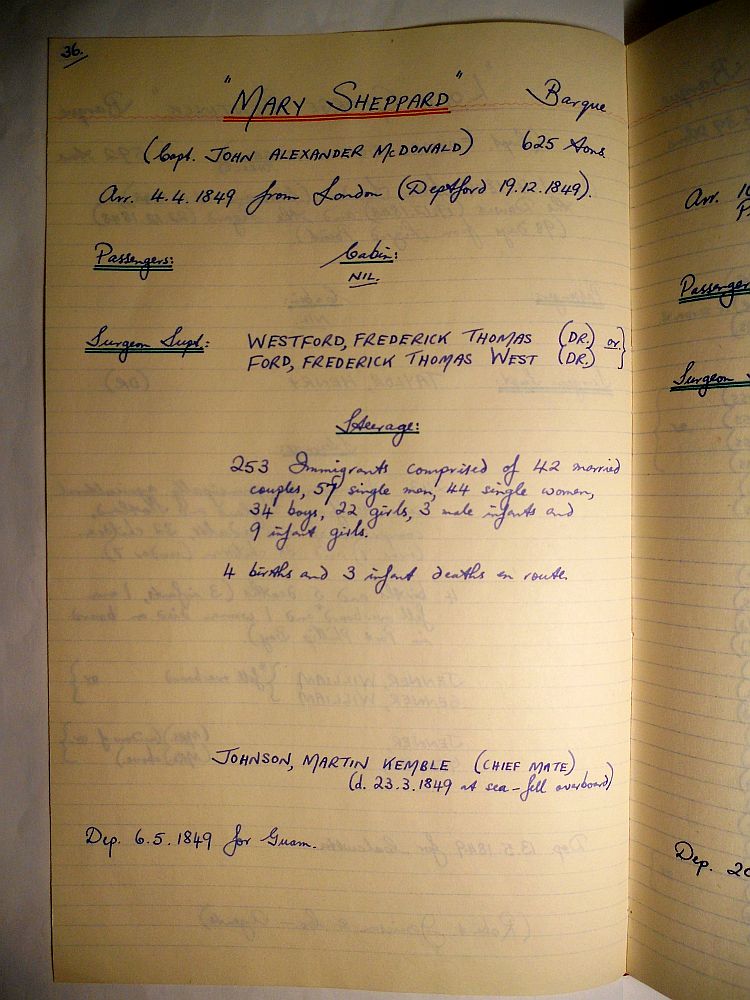 36.
"MARY SHEPPARD" Barque
(Capt. JOHN ALEXANDER McDONALD) 625 tons
Arr. 4.4.1849 from London (Deptford 19.12.1849).
Passengers: Cabin:
NIL.
Surgeon Supt.: WESTFORD, FREDERICK THOMAS (DR.) or }
FORD, FREDERICK THOMAS WEST (DR.)
Steerage:
253 Immigrants comprised of 42 married
couples, 57 single men, 44 single women,
34 boys, 22 girls, 3 male infants and
9 infant girls.
4 births and 3 infant deaths en route.
JOHNSON, MARTIN KEMBLE (CHIEF MATE)
(d. 23.3.1849 at sea - fell overboard)
Dep. 6.5.1849 for Guam.
Arr.
Passenger
Surgeon
Dep. 20